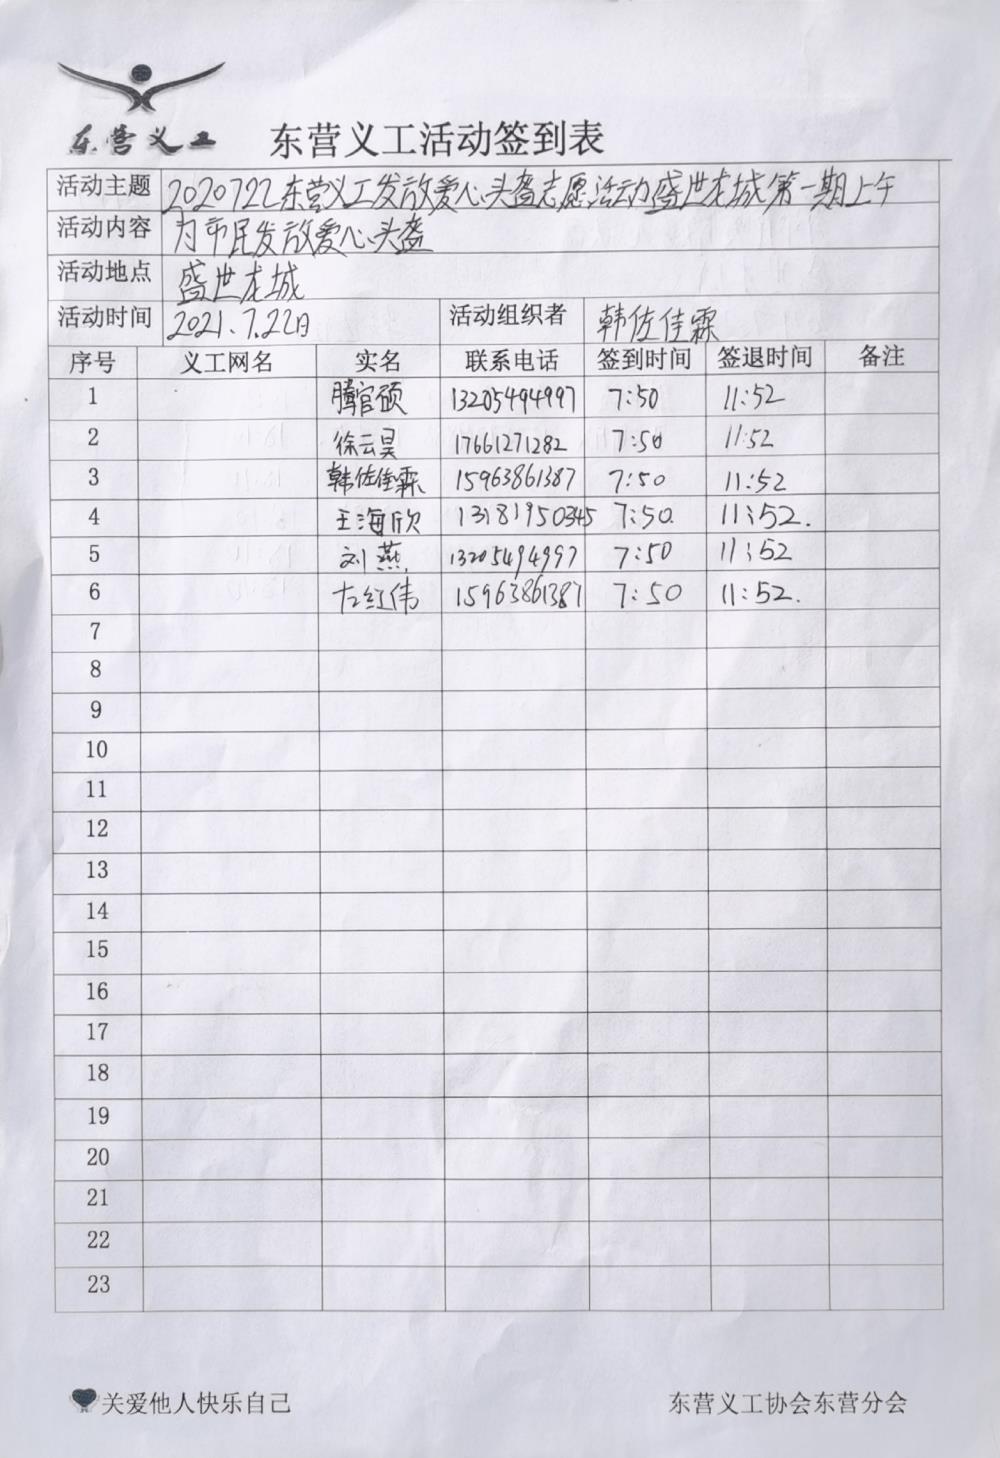 东营义工 东营义工活动签到表
活动主题 2020722东营义工发放爱心头盔志愿活动盛世龙城第一期上午
活动内容 为市民发放爱心头盔
活动地点 盛世龙城
活动时间 2021.7.22日 活动组织者 韩佐佳霖
序号 义工网名 实名 联系电话 签到时间 签退时间 备注
1 腾官硕 13205494997 7:50 11:52
2 徐云昊 17661271282 7:50 11:52
3 韩佐佳霖 15963861387 7:50 11:52
4 王海欣 13181950345 7:50. 11:52.
5 刘燕 13205494997 7:50 11:52
6 左红伟 15963861387 7:50 11:52.
7
8
9
10
11
12
13
14
15
16
17
18
19
20
21
22
23
关爱他人快乐自己 东营义工协会东营分会